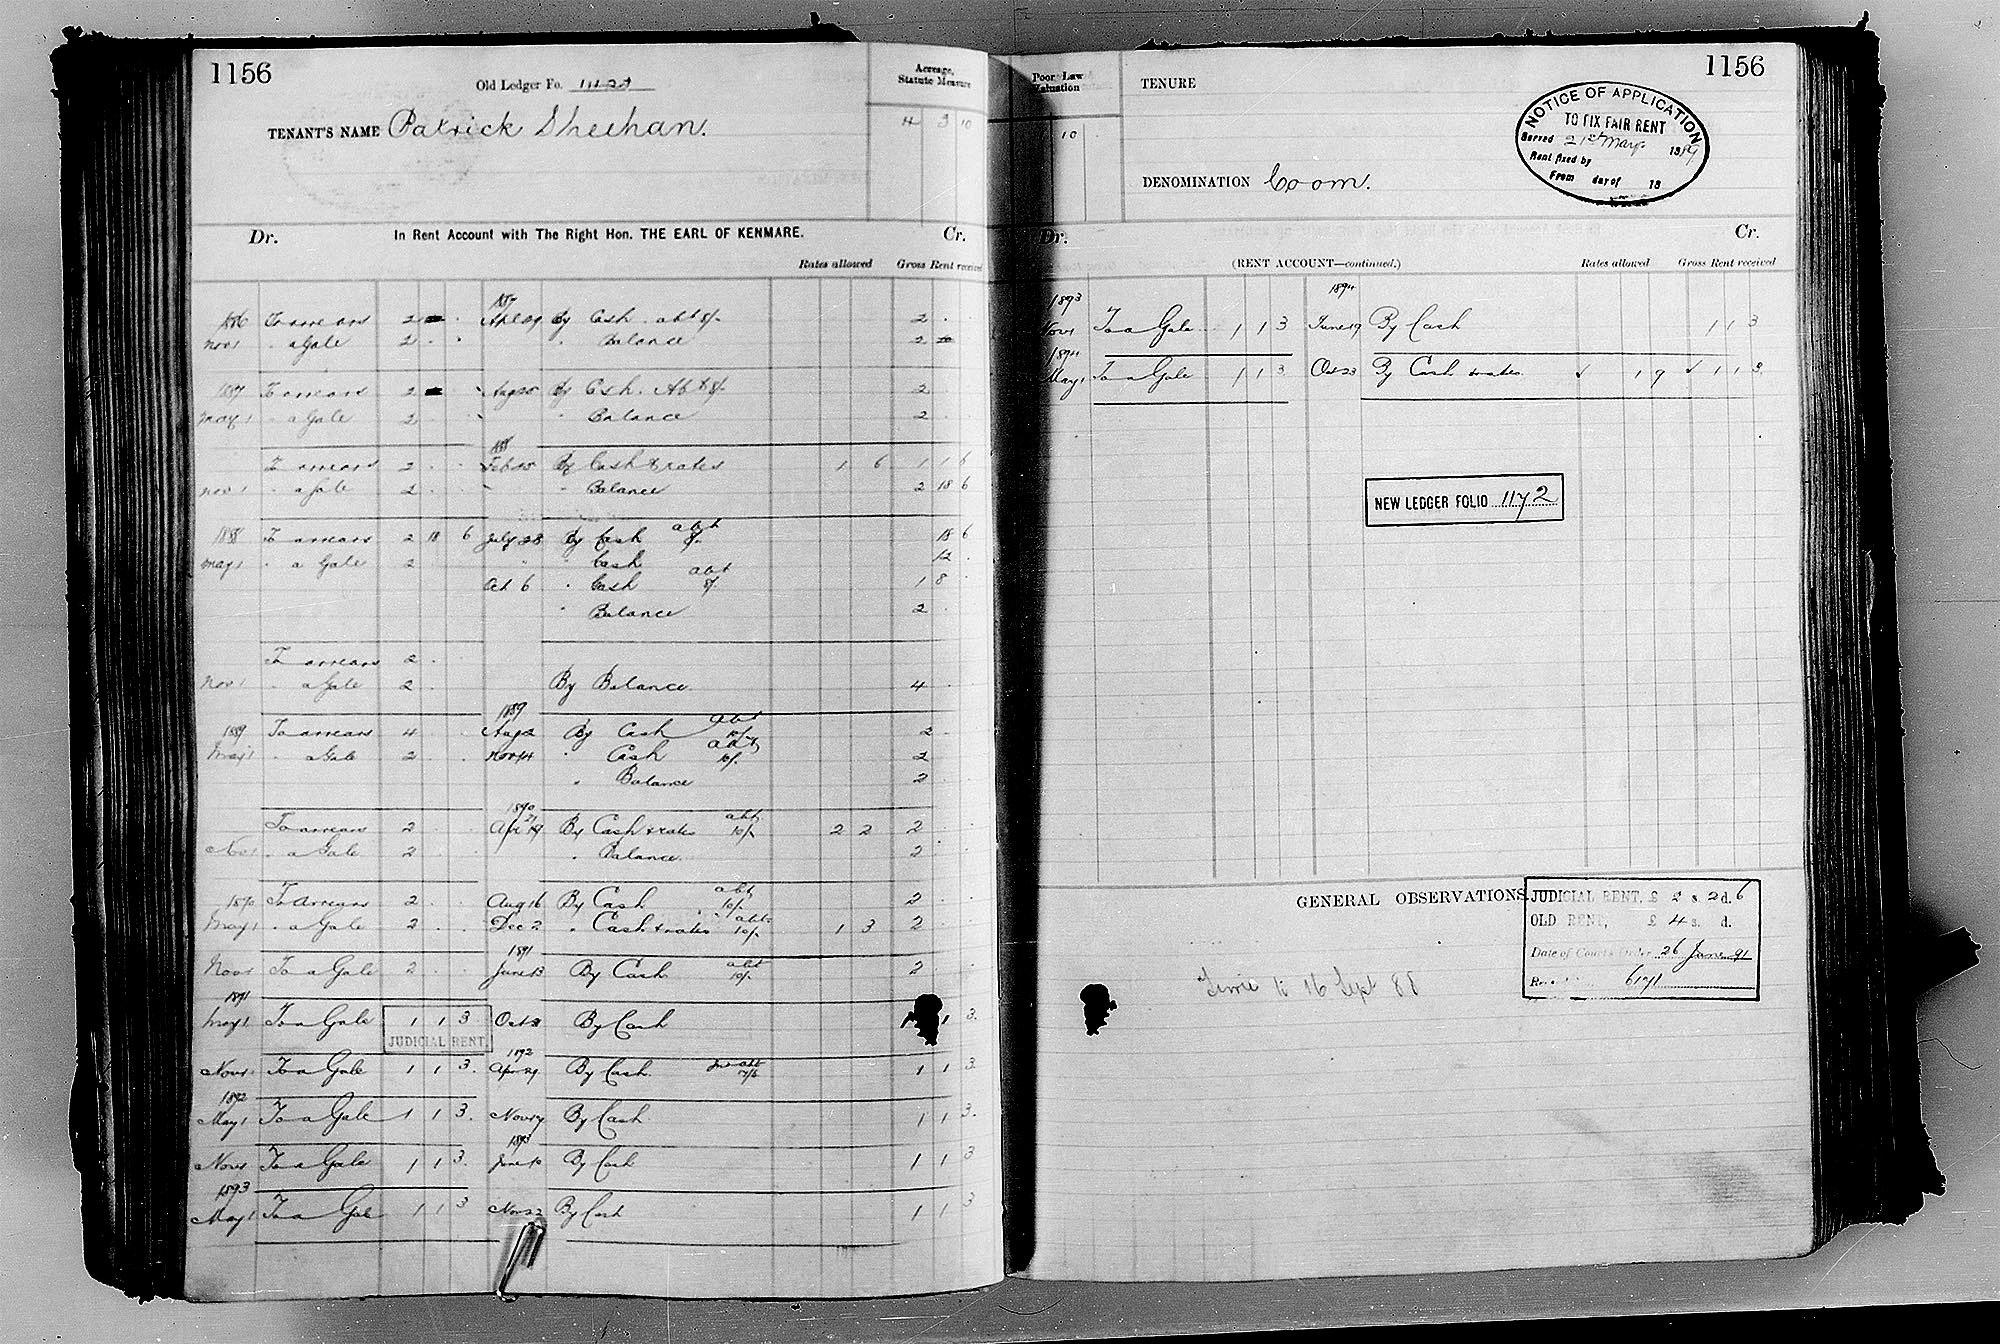 1156
Old Ledger Fo.
Acreage, Statute Measure
TENANT'S NAME Patrick Sheehan.
4 3 10
Dr. In Rent Account with The Right Hon. THE EARL OF KENMARE. Cr.
Rates allowed Gross Rent received
1886 To arrears 2 1887 Apl 29 By Cash abt 8/- 2
Nov 1 " a Gale 2 " Balance 2
1887 To arrears 2 Aug 25 By Cash. Abt 8/- 2
May 1 " a Gale 2 " Balance 2
To arrears 2 1888 Feb 25 By Cash & rates 1 6 1 1 6
Nov 1 " a Gale 2 " Balance 2 18 6
1888 To arrears 2 18 6 July 28 By Cash abt 8/- 18 6
May 1 " a Gale 2 " Cash 12
Oct 6 " Cash abt 8/- 1 8
" Balance 2
To arrears 2
Nov 1 " a Gale 2 By Balance 4
1889 To arrears 4 1889 Aug 2 By Cash abt 10/- 2
May 1 " a Gale 2 Nov 14 " Cash abt 10/- 2
" Balance 2
To arrears 2 1890 Apr By Cash & rates abt 10/- 2 2 2
Nov 1 " a Gale 2 " Balance 2
1890 To Arrears 2 Aug 16 By Cash abt 10/- 2
May 1 " a Gale 2 Dec 2 " Cash & rates abt 10/- 1 3 2
Nov 1 To a Gale 2 1891 June 13 By Cash abt 10/- 2
1891
May 1 To a Gale 1 1 3 Oct By Cash 1 1 3
JUDICIAL RENT
Nov 1 To a Gale 1 1 3 1892 Apr 29 By Cash abt 7/6 1 1 3
1892
May 1 To a Gale 1 1 3 Nov 17 By Cash 1 1 3
Nov 1 To a Gale 1 1 3 1893 June 10 By Cash 1 1 3
1893
May 1 To a Gale 1 1 3 Nov 22 By Cash 1 1 3
1156
Poor Law Valuation
10
TENURE
DENOMINATION Coom.
NOTICE OF APPLICATION
TO FIX FAIR RENT
Served 21st May 1889
Rent fixed by
From day of 18
Dr. Cr.
(RENT ACCOUNT—continued.) Rates allowed Gross Rent received
1893 1894
Nov 1 To a Gale 1 1 3 June 19 By Cash 1 1 3
1894
May 1 To a Gale 1 1 3 Oct 23 By Cash & rates ✓ 1 9 ✓ 1 1 3
NEW LEDGER FOLIO 1172
GENERAL OBSERVATIONS.
JUDICIAL RENT, £ 2 s 2 d. 6
OLD RENT, £ 4 s. d.
Date of Courts Order 26 June 91
6191
Time to 16 Sept 88